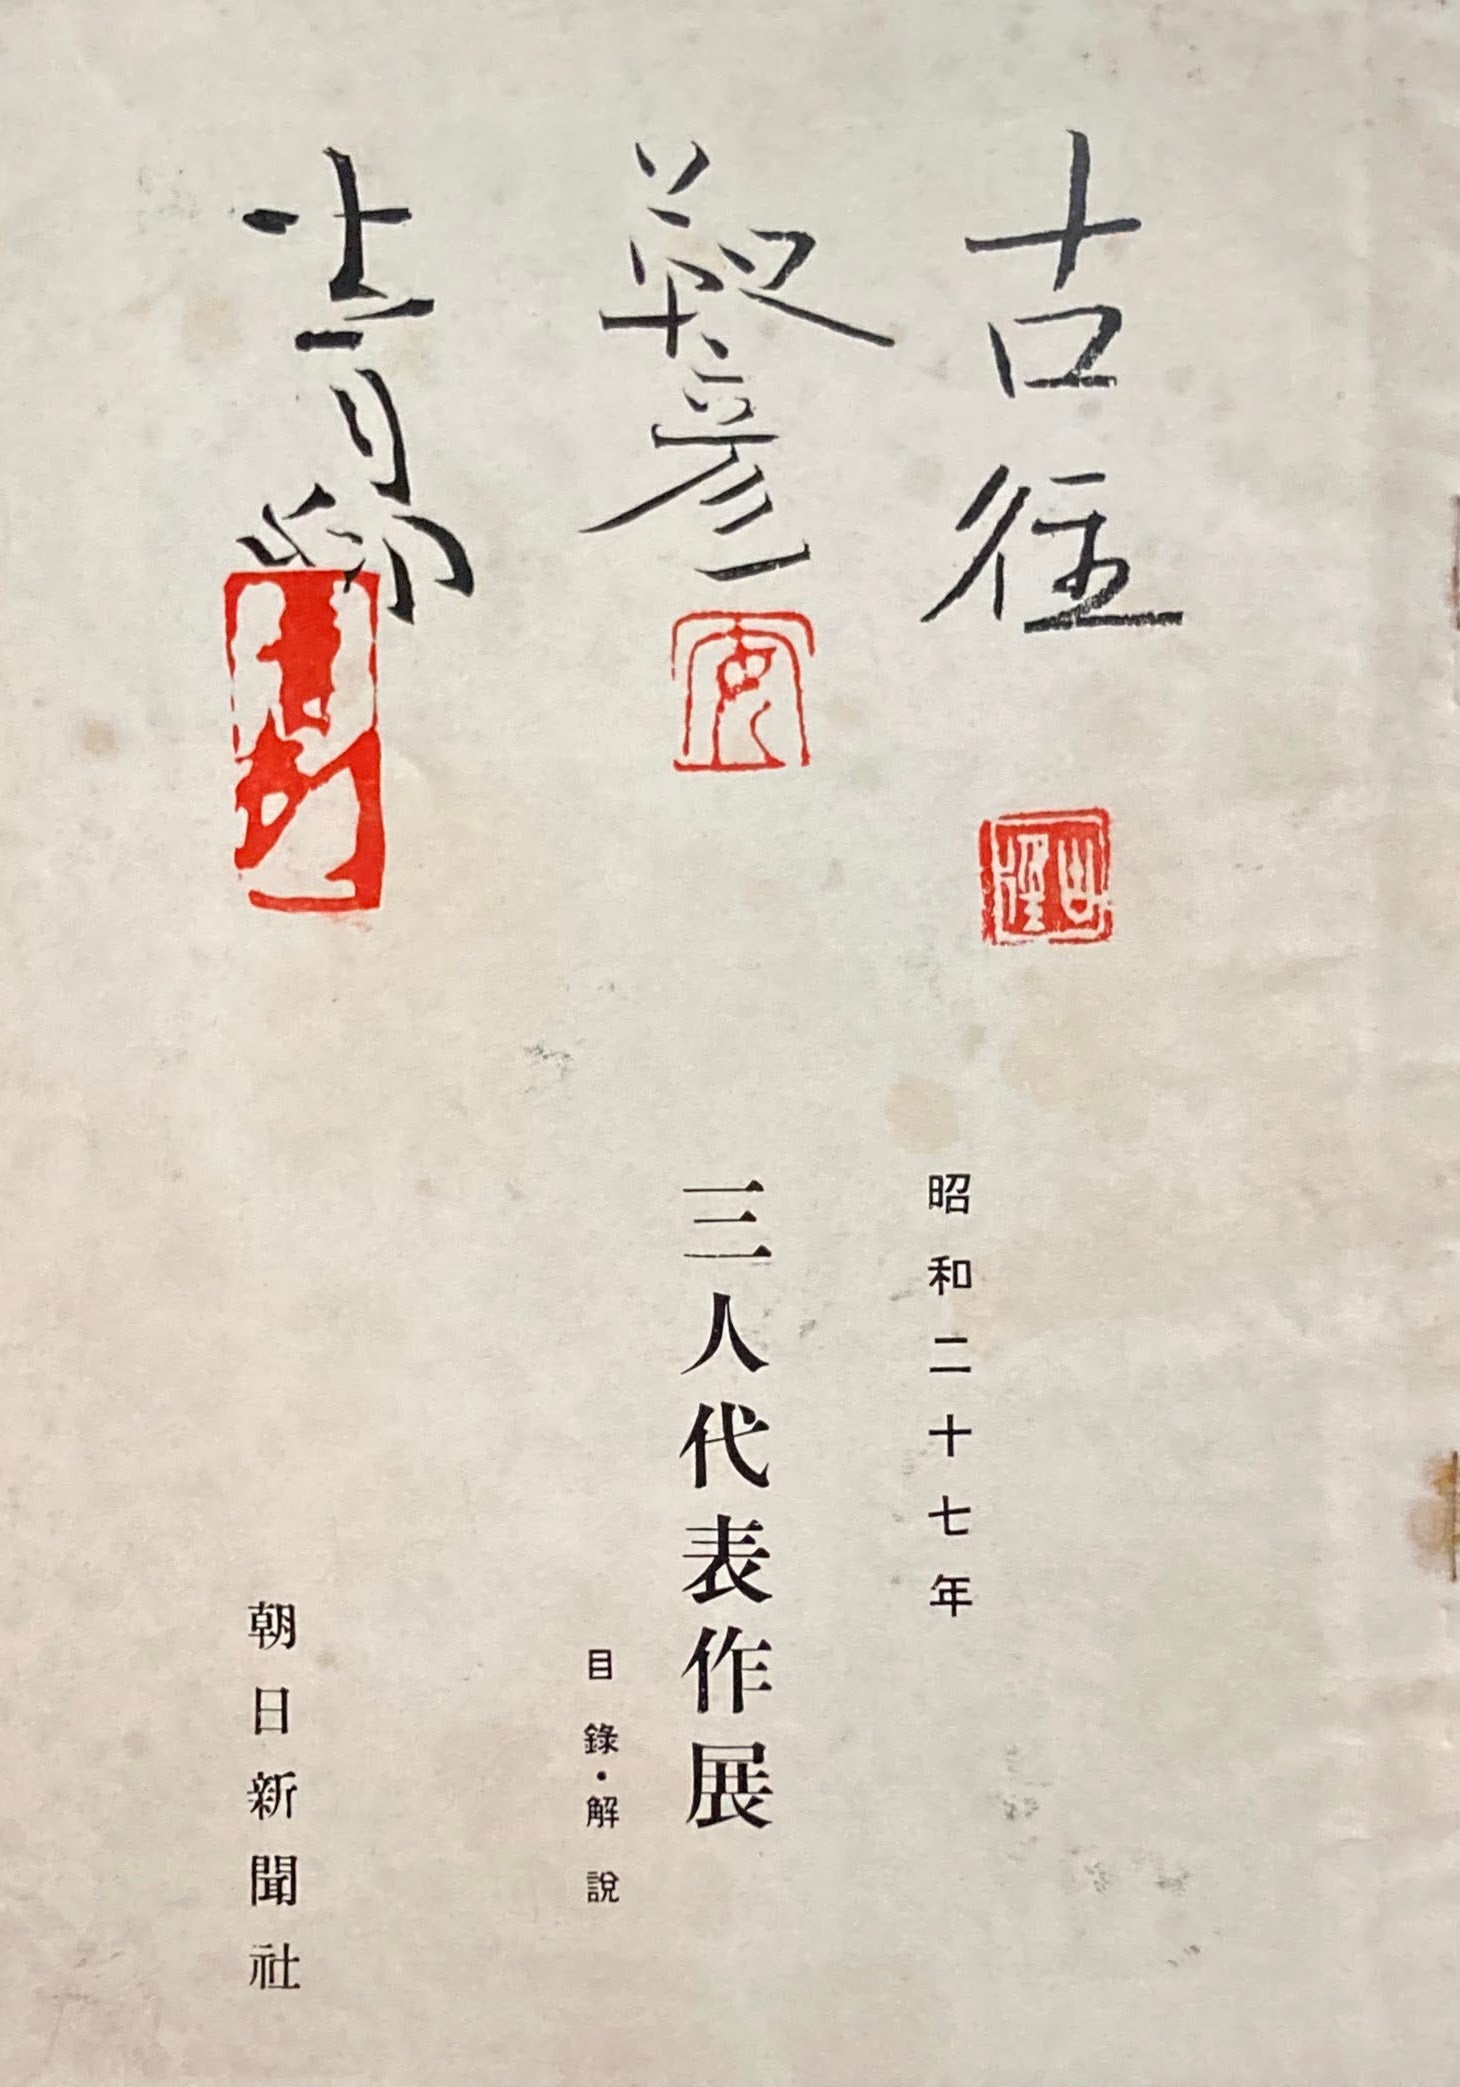 古径
靫彦
青邨
昭和二十七年
三人代表作展
目錄・解說
朝日新聞社